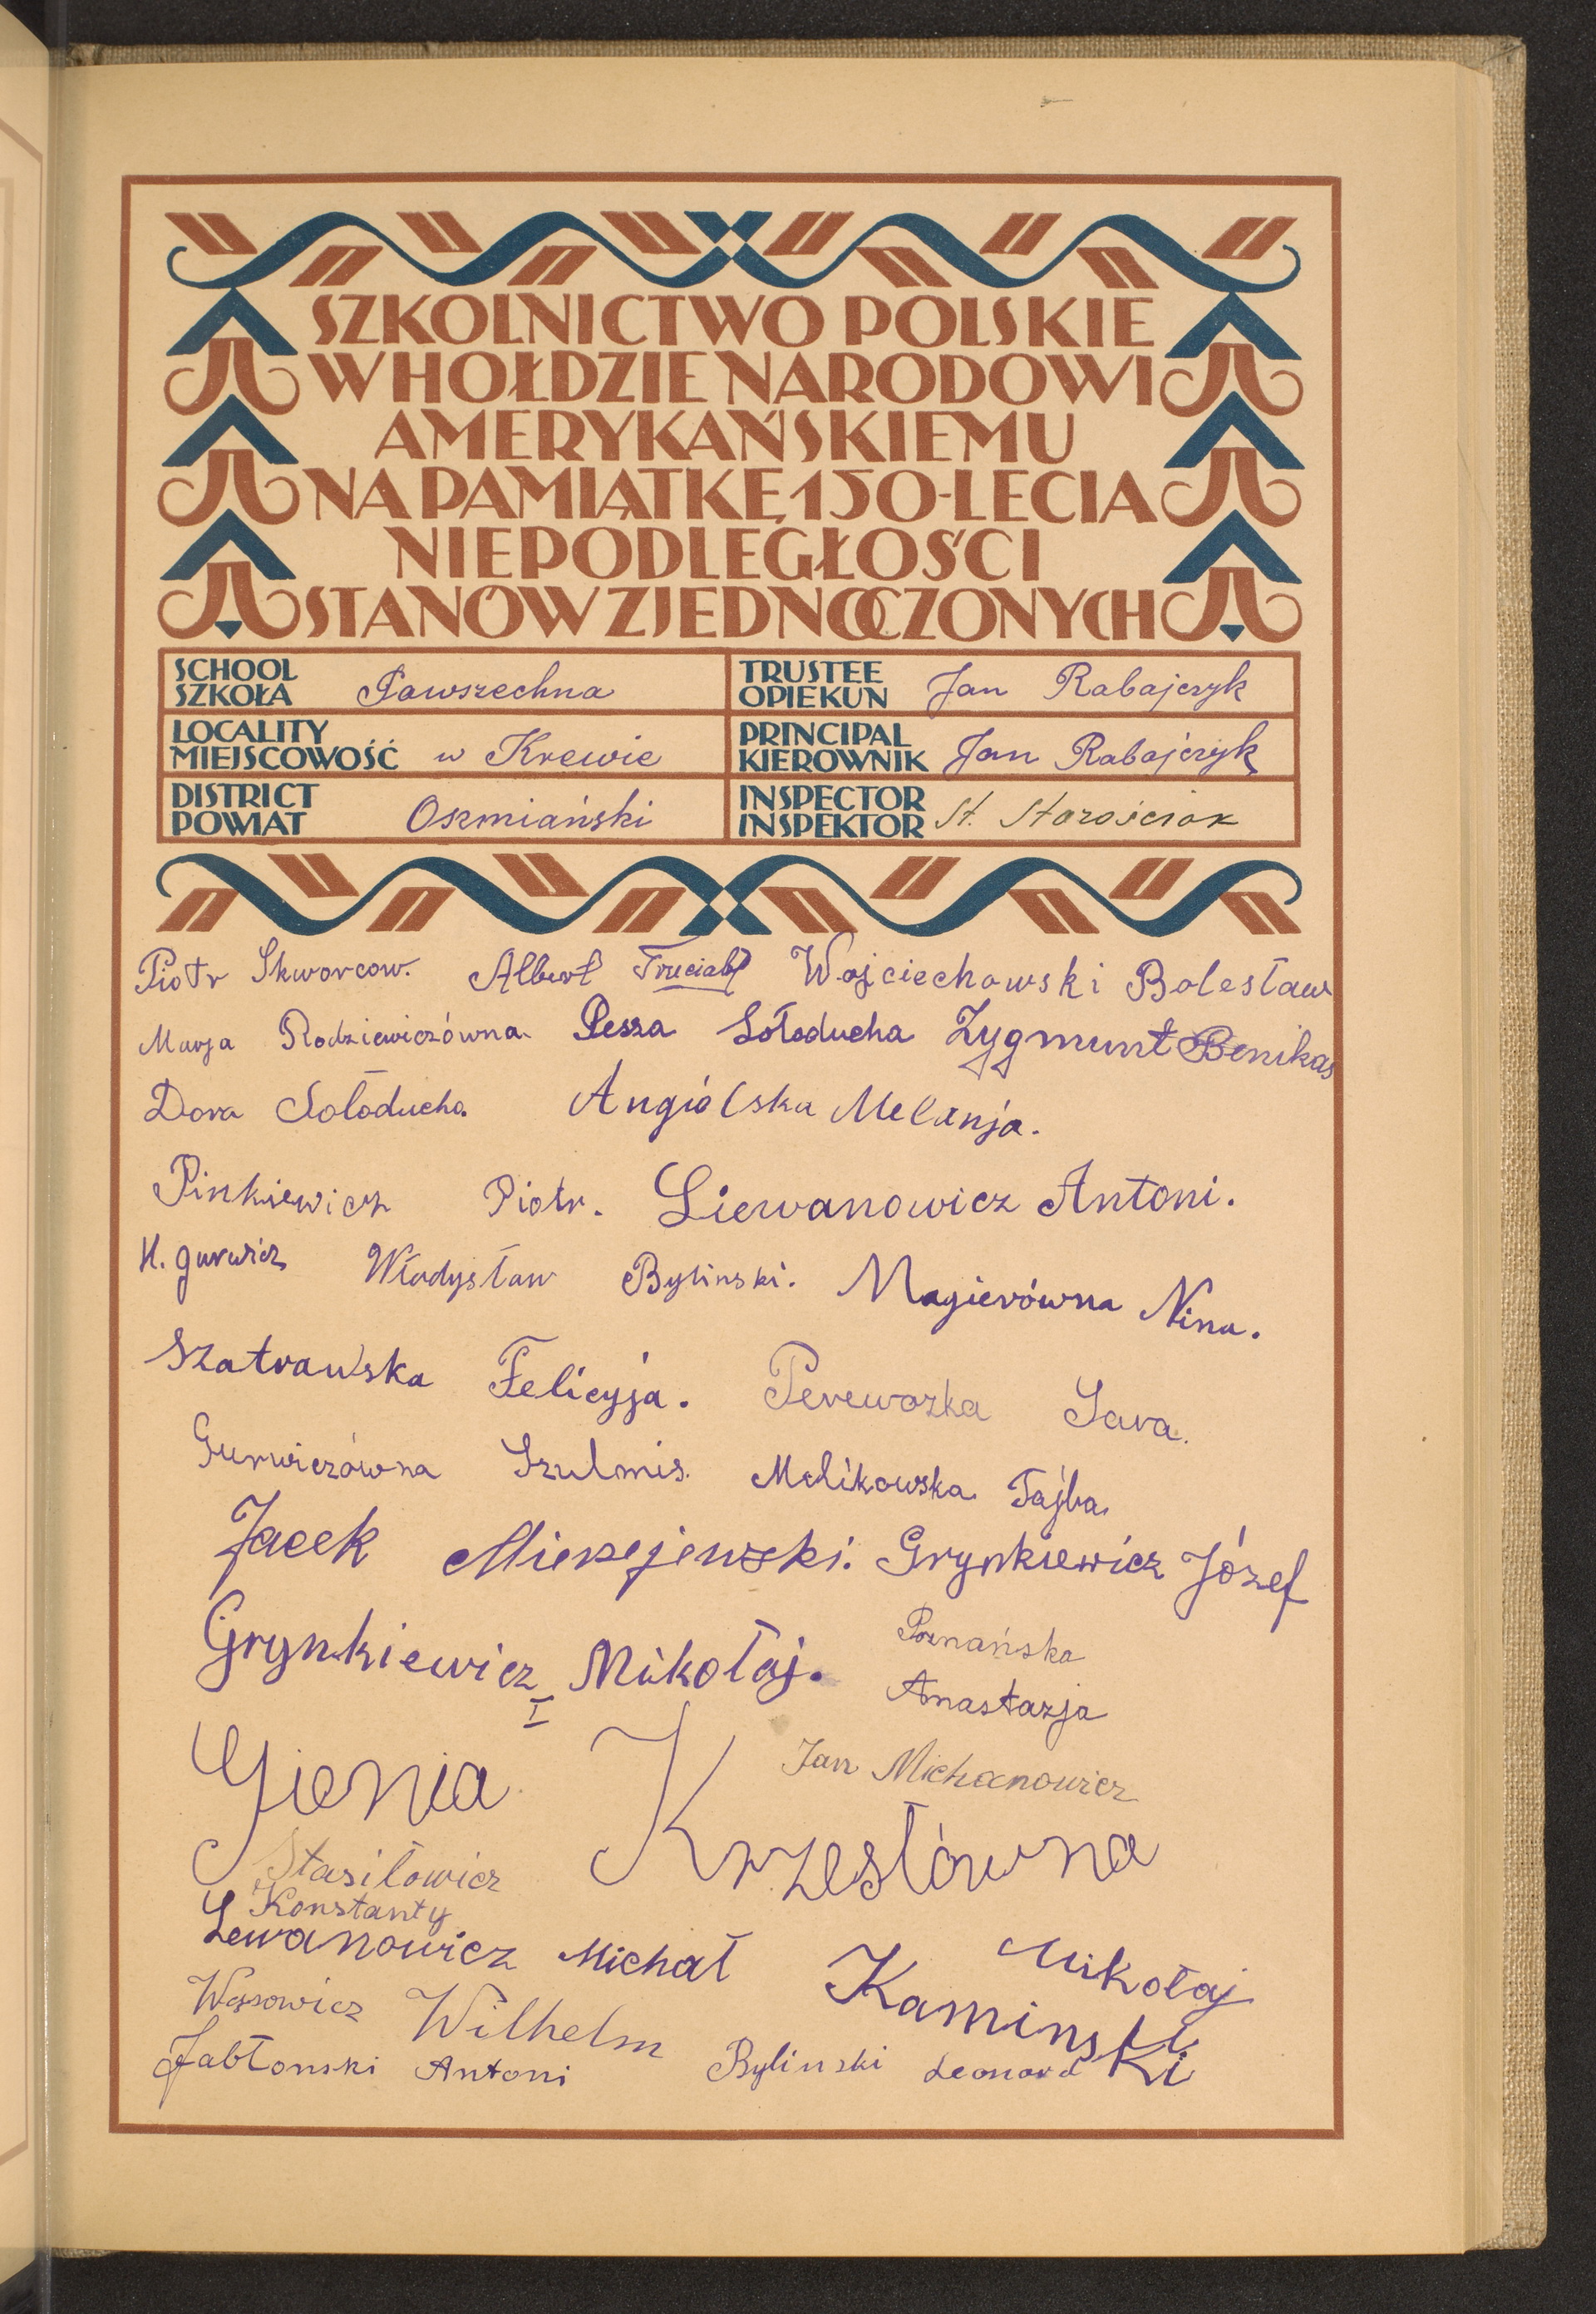 SZKOLNICTWO POLSKIE
W HOŁDZIE NARODOWI
AMERYKAŃSKIEMU
NA PAMIĄTKĘ 150-LECIA
NIEPODLEGŁOŚCI
STANÓW ZJEDNOCZONYCH
SCHOOL
SZKOŁA Powszechna
TRUSTEE
OPIEKUN Jan Rabajczyk
LOCALITY
MIEJSCOWOŚĆ w Krewie
PRINCIPAL
KIEROWNIK Jan Rabajczyk
DISTRICT
POWIAT Oszmiański
INSPECTOR
INSPEKTOR St. Starościak
Piotr Skworcow. Albert Wojciechowski Bolesław
Marja Rodziewiczówna. Pesza Sołoducha Zygmunt Benikas
Dora Sołoducha Angiólska Melanja.
Pinkiewicz Piotr. Liewanowicz Antoni.
H. Gurwicz Władysław Bylinski. Magierówna Nina.
Szatrawska Felicyja. Perewozka Sara.
Gurwiczówna Szulmis. Melikowska Tajba.
Jacek Mierzejewski. Grynkiewicz Józef
Grynkiewicz I Mikołaj. Poznańska
Anastazja
Gienia Krzesłówna
Jan Michanowicz
Stasiłowicz
Konstanty
Lewanowicz Michał Mikołaj
Kaminski
Wąsowicz Wilhelm
Jabłonski Antoni Bylinski Leonard